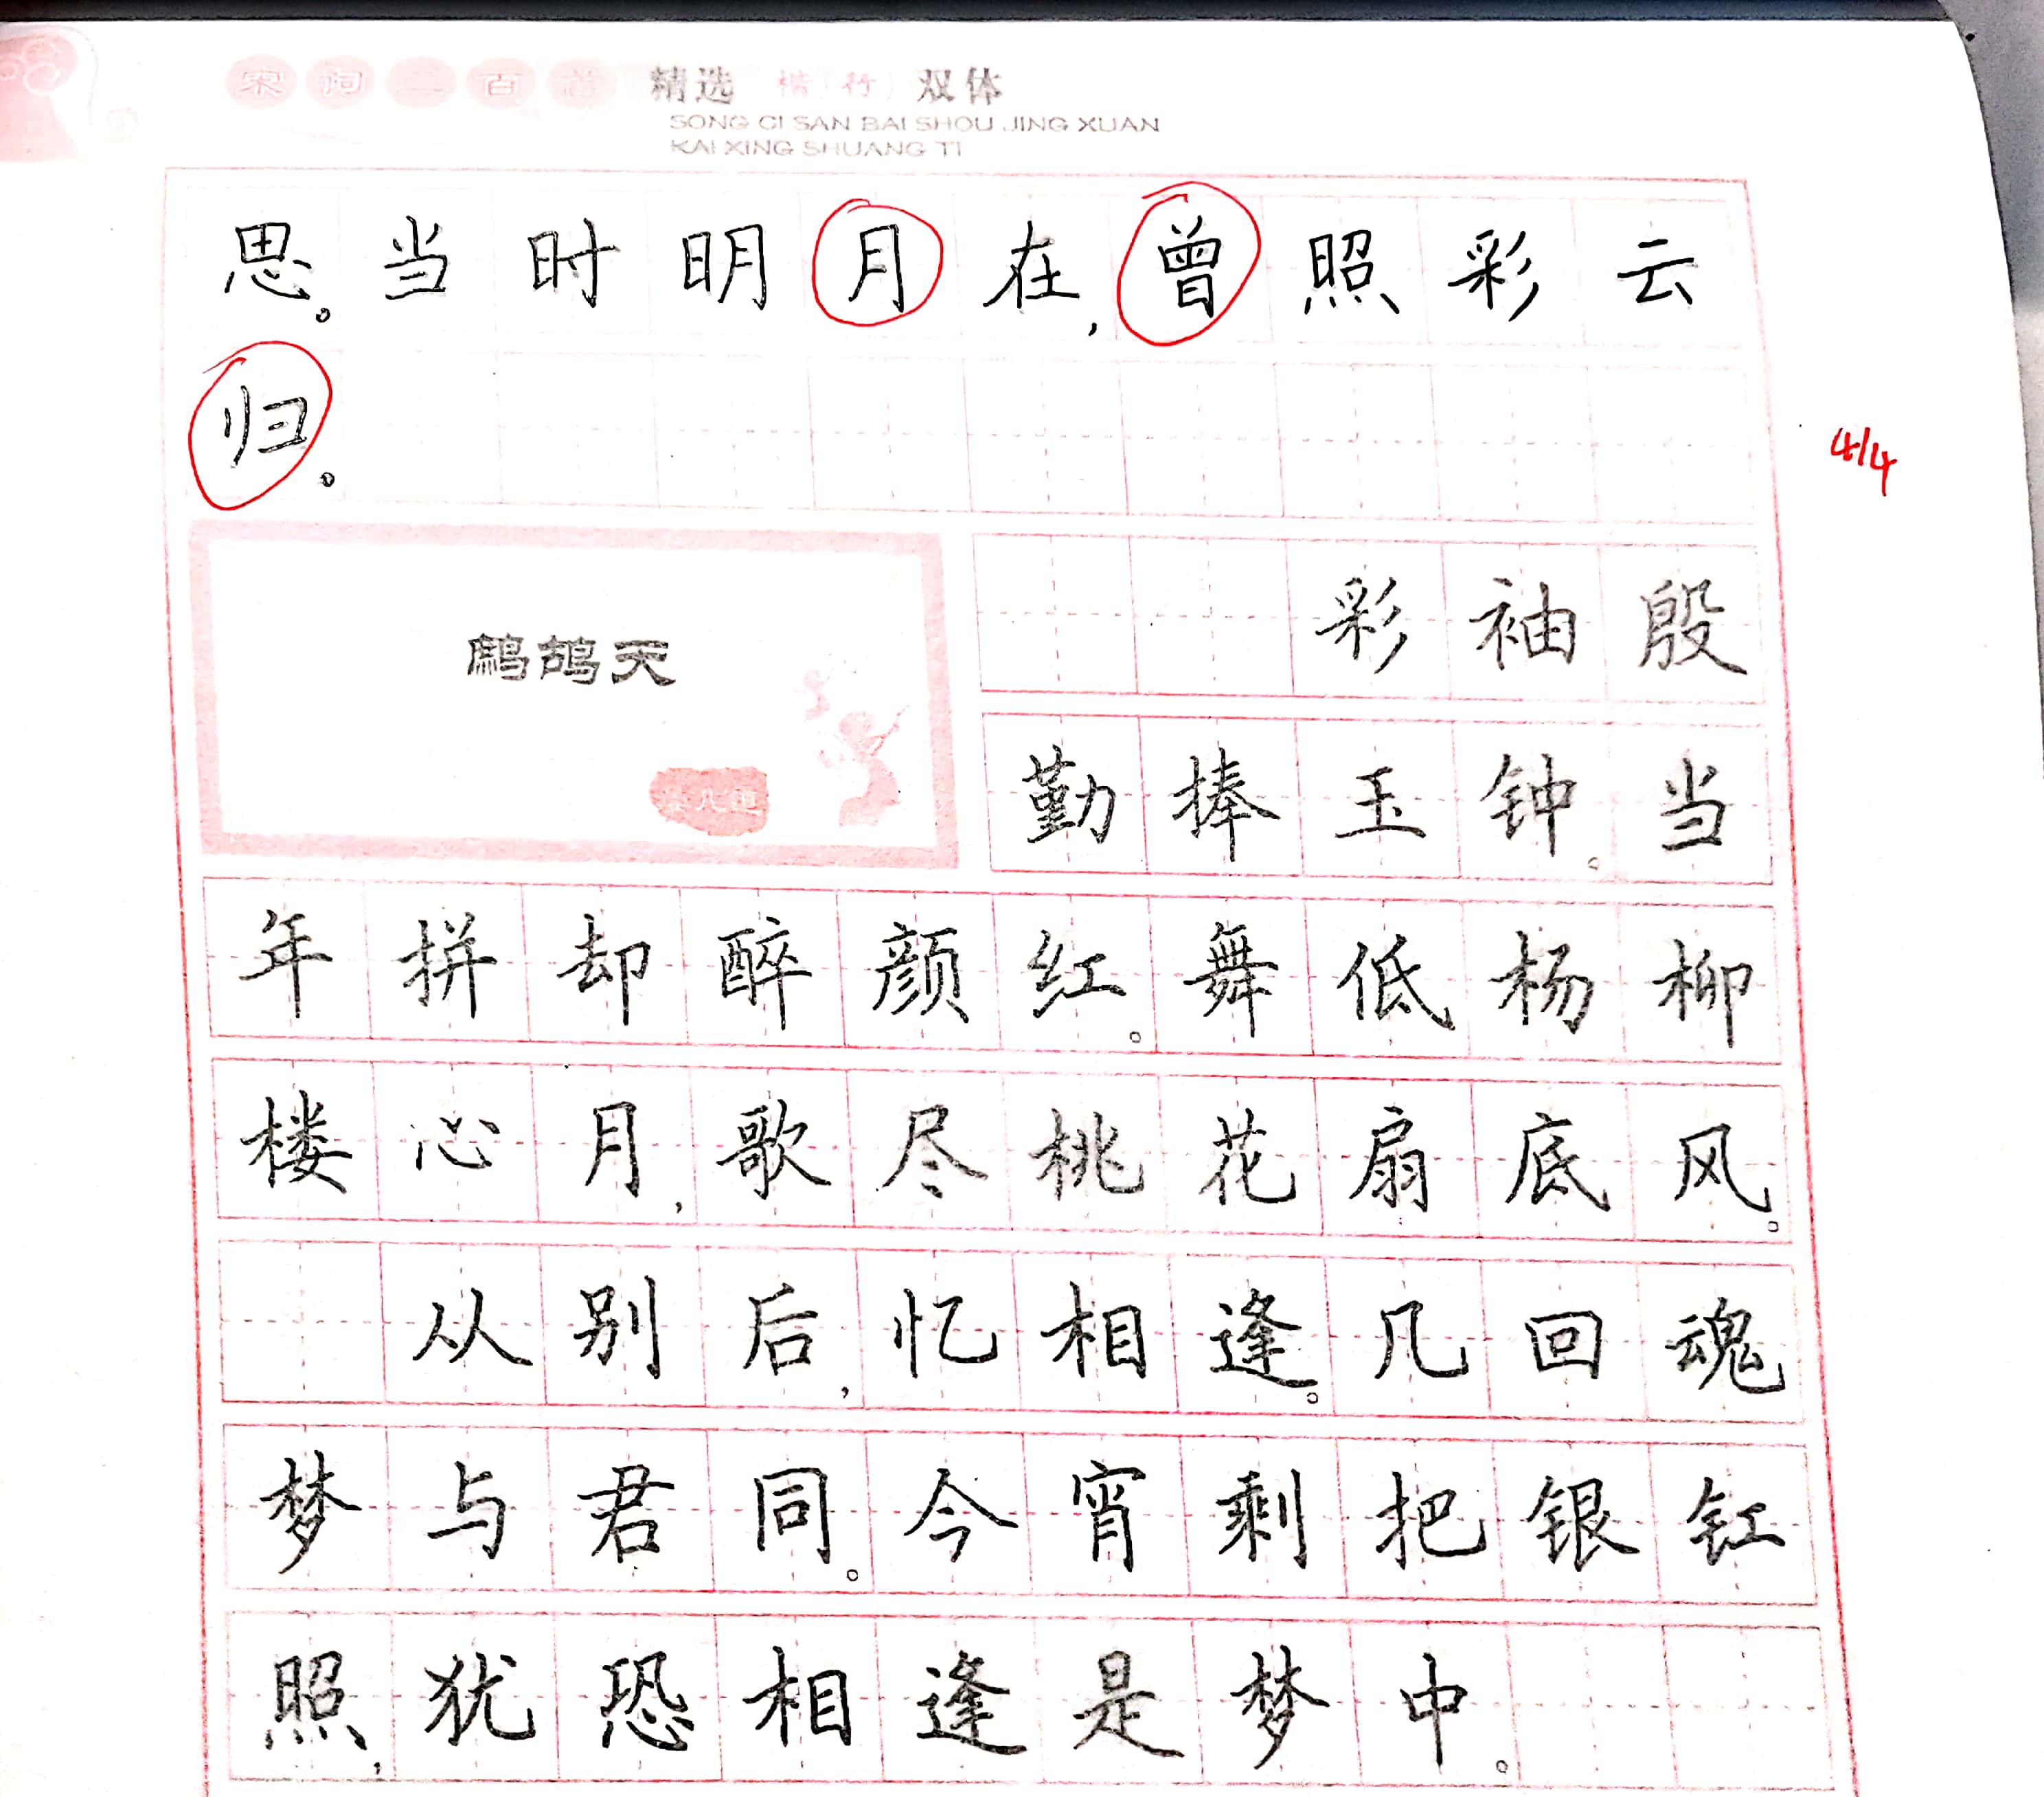 宋词三百首精选 楷行 双体
SONG CI SAN BAI SHOU JING XUAN
KAI XING SHUANG TI
思。当时明月在,曾照彩云
归。
4/4
鹧鸪天
晏几道
彩袖殷
勤捧玉钟。当
年拼却醉颜红。舞低杨柳
楼心月,歌尽桃花扇底风。
从别后,忆相逢。几回魂
梦与君同。今宵剩把银釭
照,犹恐相逢是梦中。